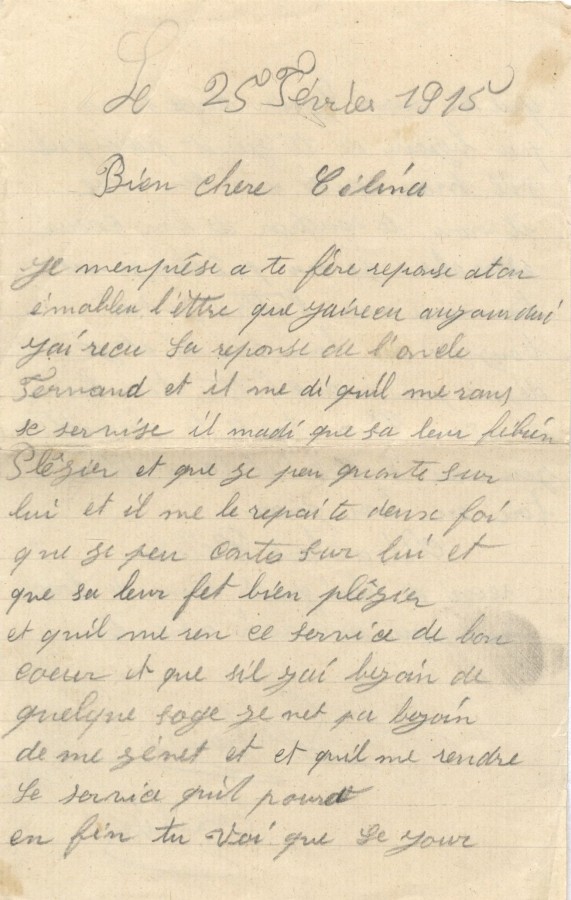 Le 25 Février 1915
Bien chere Célina
Je menprése a te fére reponse a ton
émablea l'éttre que jairecu aujourdui
jai recu la reponse de l'oncle
Fernand et il me di quil me rans
se servise il madi que sa leur febien
Plêzier et que je peu quonte sur
lui et il me le repaite deux foi
que je peu contes sur lui et
que sa leur fet bien plêzier
et quil me ren ce service de bon
coeur et que sil jai bezoin de
quelque soge je net pa bezoin
de me jénet et et quil me rendre
le service quil pourat
en fin tu voi que le jour